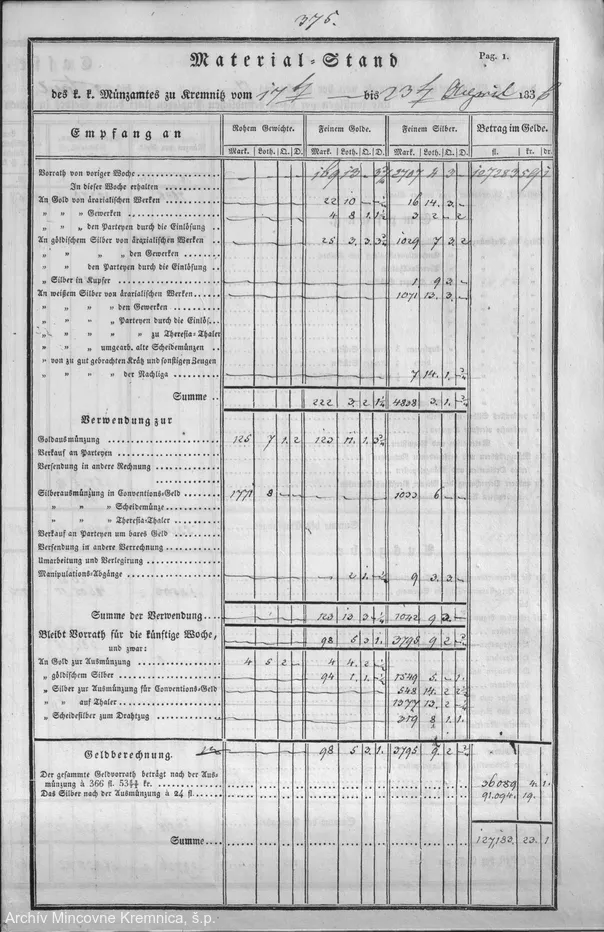 375.
Material-Stand
Pag. 1.
des k. k. Münzamtes zu Kremnitz vom 17t bis 23t April 1836
Empfang an
Rohem Gewichte. Feinem Golde. Feinem Silber. Betrag im Gelde.
Mark. Loth. Q. D. Mark. Loth. Q. D. Mark. Loth. Q. D. fl. kr. dr.
Vorrath von voriger Woche 169 13 2707 2 3 107383 59 1
In dieser Woche erhalten
An Gold von ärarialischen Werken 22 10 16 14. 3.
„ „ „ Gewerken 4 8 1. 1½ 3 2 2
„ „ „ den Parteyen durch die Einlösung
An göldischem Silber von ärarialischen Werken 25 3. 3. 1029 7 3. 2
„ „ „ den Gewerken
„ „ den Parteyen durch die Einlösung
„ Silber in Kupfer 1 9 3
An weißem Silber von ärarialischen Werken 1071 13. 3.
„ „ „ „ den Gewerken
„ „ „ „ Parteyen durch die Einlös.
„ „ „ „ „ zu Theresia-Thaler
„ „ „ umgearb. alte Scheidemünzen
„ von zu gut gebrachten Krätz und sonstigen Zeugen
„ „ „ „ der Nachliga 7 14. 1.
Summe 222 3. 2 1½ 4838 3. 1.
Verwendung zur
Goldausmünzung 125 7 1. 2 123 11. 1.
Verkauf an Parteyen
Versendung in andere Rechnung
Silberausmünzung in Conventions-Geld 1771 8 1033 6
„ „ „ Scheidemünze
„ „ „ Theresia-Thaler
Verkauf an Parteyen um bares Geld
Versendung in andere Verrechnung
Umarbeitung und Verlegirung
Manipulations-Abgänge 2 1. 9 3. 3.
Summe der Verwendung 123 13 3 1042 9 3.
Bleibt Vorrath für die künftige Woche, 98 5 3 1. 3795 9 2
und zwar:
An Gold zur Ausmünzung 4 5 2 4 4. 2
„ göldischem Silber 94 1. 1. 1549 5. 1.
„ Silber zur Ausmünzung für Conventions-Geld 548 14. 2
„ „ auf Thaler 1377 13. 2
„ Scheidesilber zum Drahtzug 319 8 1. 1.
Geldberechnung. 98 5 3. 1 3795 9. 2
Der gesammte Goldvorrath beträgt nach der Aus-
münzung à 366 fl. kr. 36089 4. 1.
Das Silber nach der Ausmünzung à 24 fl. 91.094. 19.
Summe 127,183 23. 1
Archív Mincovne Kremnica, š.p.